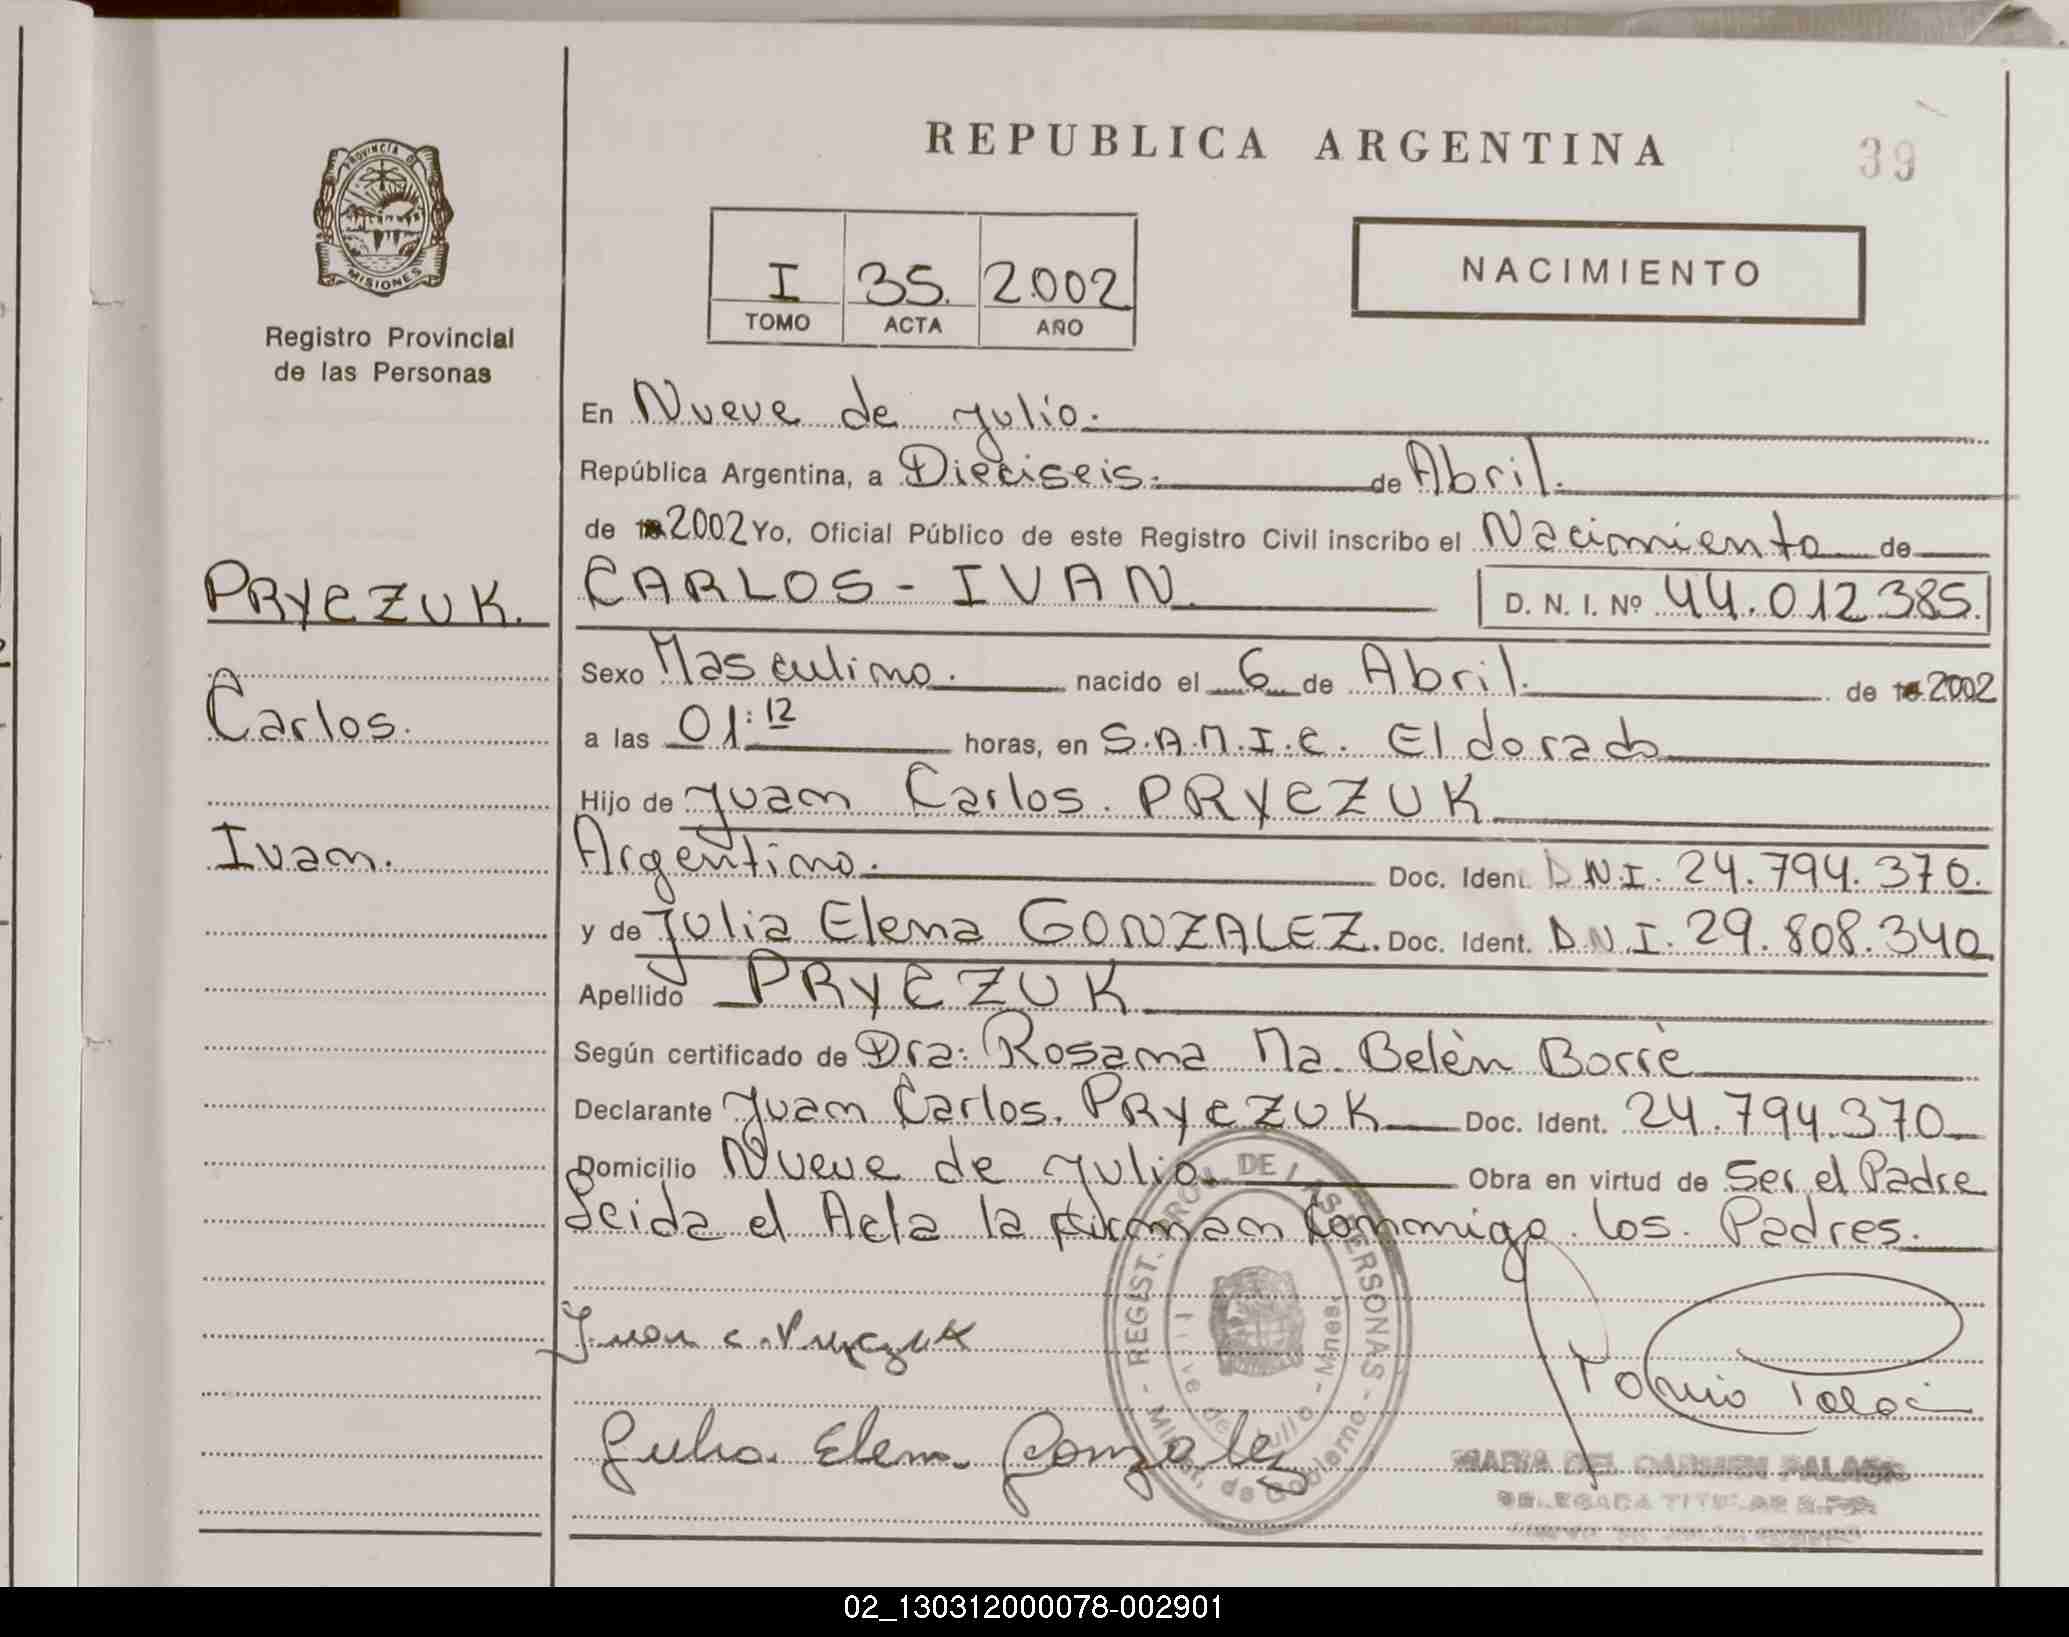 REPUBLICA ARGENTINA
39
PROVINCIA DE
MISIONES
Registro Provincial
de las Personas
I 35. 2002
TOMO ACTA AÑO
NACIMIENTO
En Nueve de Julio.
República Argentina, a Dieciseis. de Abril.
de 2002 Yo, Oficial Público de este Registro Civil inscribo el Nacimiento de
PRYCZUK.
CARLOS - IVAN D. N. I. Nº 44.012.385.
Sexo Masculino. nacido el 6 de Abril. de 2002
Carlos.
a las 01:12 horas, en S.A.M.I.C. Eldorado
Hijo de Juan Carlos. PRYCZUK
Ivan.
Argentino. Doc. Ident. D.N.I. 24.794.370.
y de Julia Elena GONZALEZ. Doc. Ident. D.N.I. 29.808.340
Apellido PRYCZUK
Según certificado de Dra: Rosana Ma. Belèn Borrè
Declarante Juan Carlos. PRYCZUK Doc. Ident. 24.794.370
Domicilio Nueve de Julio. Obra en virtud de Ser el Padre
Leida el Acta la firman conmigo los Padres.
REGIST. PROV. DE LAS PERSONAS
Nueve de Julio - Mnes.
Minist. de Gobierno
Juan C. Pryczuk
Julia Elena Gonzalez
MARIA DEL CARMEN PALACI
DELEGADA TITULAR R.P.P.
02_130312000078-002901